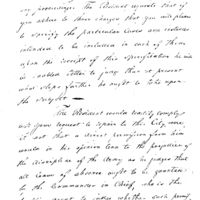 my proceedings. The President requests that if
you adhere to these charges that you will please
to specify the particular cases and orders
intended to be included in each of them
upon the receipt of this specification he will
be enabled better to judge than at present
what steps farther he ought to take upon
the subject —
The President would readily comply
with your request to repair to this City, were
it not that a direct permission from him
would in his opinion tend to the prejudice of
the discipline of the Army as he judges that
all leave of absence ought to be granted
by the Commander in Chief, who is the